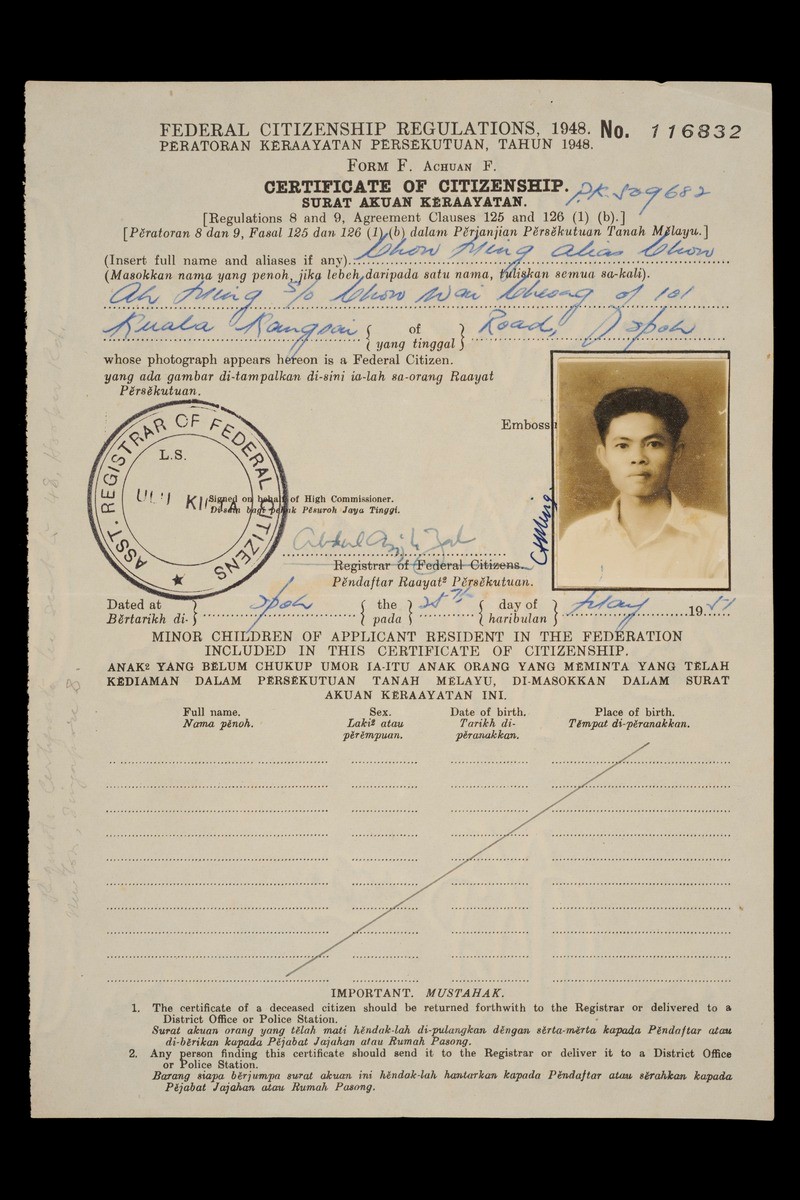 FEDERAL CITIZENSHIP REGULATIONS, 1948. No. 116832
PERATORAN KĔRAAYATAN PERSĔKUTUAN, TAHUN 1948.
FORM F. ACHUAN F.
CERTIFICATE OF CITIZENSHIP. P.K. 509682
SURAT AKUAN KĔRAAYATAN.
[Regulations 8 and 9, Agreement Clauses 125 and 126 (1) (b).]
[Pĕratoran 8 dan 9, Fasal 125 dan 126 (1) (b) dalam Pĕrjanjian Pĕrsĕkutuan Tanah Mĕlayu.]
(Insert full name and aliases if any) Chow Ming alias Chow
(Masokkan nama yang penoh, jika lebeh daripada satu nama, tuliskan semua sa-kali).
Ah Ming s/o Chow Wai Cheong of 101
Kuala Kangsar { of } Road, Ipoh
{ yang tinggal }
whose photograph appears hereon is a Federal Citizen.
yang ada gambar di-tampalkan di-sini ia-lah sa-orang Raayat
Pĕrsĕkutuan.
Emboss
ASST. REGISTRAR OF FEDERAL CITIZENS
L.S.
ULU KINTA
Signed on behalf of High Commissioner.
Di-sain bagi pehak Pĕsuroh Jaya Tinggi.
Registrar of Federal Citizens.
Pĕndaftar Raayat² Pĕrsĕkutuan.
Dated at } Ipoh { the } 28th { day of } May 1951
Bĕrtarikh di- } { pada } { haribulan }
MINOR CHILDREN OF APPLICANT RESIDENT IN THE FEDERATION
INCLUDED IN THIS CERTIFICATE OF CITIZENSHIP.
ANAK² YANG BELUM CHUKUP UMOR IA-ITU ANAK ORANG YANG MEMINTA YANG TELAH
KĔDIAMAN DALAM PERSĔKUTUAN TANAH MĔLAYU, DI-MASOKKAN DALAM SURAT
AKUAN KĔRAAYATAN INI.
Full name. Sex. Date of birth. Place of birth.
Nama pĕnoh. Laki² atau Tarikh di- Tĕmpat di-pĕranakkan.
pĕrĕmpuan. pĕranakkan.
IMPORTANT. MUSTAHAK.
1. The certificate of a deceased citizen should be returned forthwith to the Registrar or delivered to a
District Office or Police Station.
Surat akuan orang yang tĕlah mati hĕndak-lah di-pulangkan dĕngan sĕrta-mĕrta kapada Pĕndaftar atau
di-bĕrikan kapada Pĕjabat Jajahan atau Rumah Pasong.
2. Any person finding this certificate should send it to the Registrar or deliver it to a District Office
or Police Station.
Barang siapa bĕrjumpa surat akuan ini hĕndak-lah hantarkan kapada Pĕndaftar atau sĕrahkan kapada
Pĕjabat Jajahan atau Rumah Pasong.